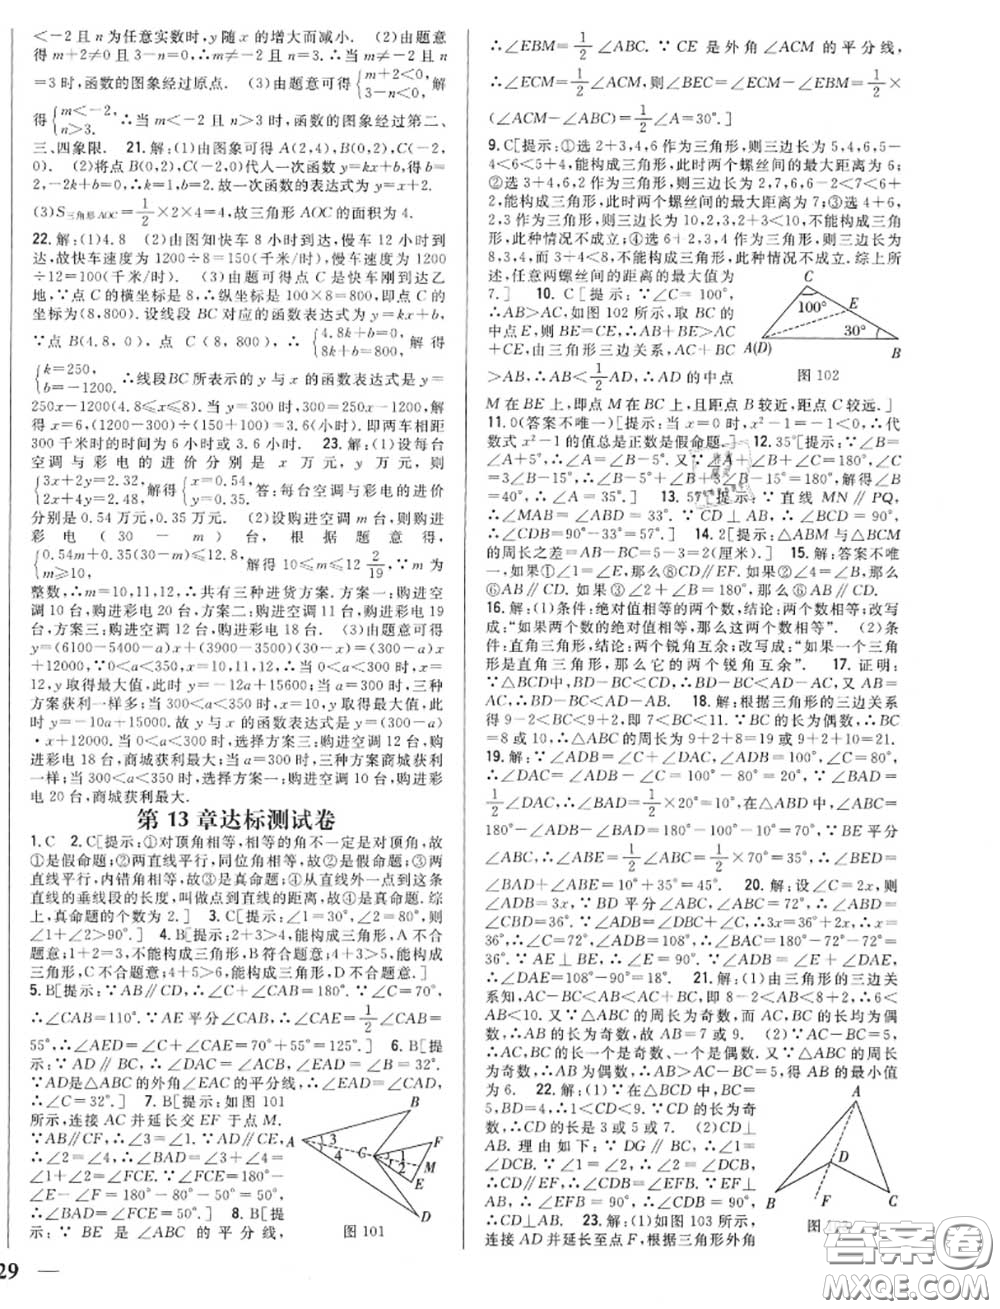 <-2 且 n 为任意实数时, y 随 x 的增大而减小. (2)由题意
得 m+2≠0 且 3-n=0, ∴m≠-2 且 n=3. ∴当 m≠-2 且 n
=3 时, 函数的图象经过原点. (3)由题意可得{m+2<0, 3-n<0, 解
得{m<-2, n>3. ∴当 m<-2 且 n>3 时, 函数的图象经过第二、
三、四象限. 21. 解:(1)由图象可得 A(2,4), B(0,2), C(-2,
0). (2)将点 B(0,2), C(-2,0)代人一次函数 y=kx+b, 得 b=
2, -2k+b=0, 解得 k=1. 故一次函数的表达式为 y=x+2.
(3)S三角形AOC=1/2×2×4=4, 故三角形 AOC 的面积为 4.
22. 解:(1)4.8 (2)由图知快车 8 小时到达, 慢车 12 小时到
达, 故快车速度为 1200÷8=150(千米/时), 慢车速度为 1200
÷12=100(千米/时). (3)由题意可得点 C 是快车刚到达乙
地, ∵点 C 的横坐标是 8, ∴纵坐标是 100×8=800, 即点 C 的
坐标为(8,800). 设线段 BC 对应的函数表达式为 y=kx+b,
∵点 B(4.8, 0), 点 C(8, 800), ∴{4.8k+b=0, 8k+b=800, 解得
{k=250, b=-1200. ∴线段BC 所表示的 y 与 x 的函数表达式是 y=
250x-1200(4.8≤x≤8). 当 y=300 时, 300=250x-1200, 解
得 x=6, (1200-300)÷(150+100)=3.6(小时). 即两车相距
300 千米时的时间为 6 小时或 3.6 小时. 23. 解:(1)设每台
空调与彩电的进价分别是 x 万元, y 万元, 则
{3x+2y=2.32, 2x+4y=2.48, 解得{x=0.54, y=0.35. 答:每台空调与彩电的进价
分别是 0.54 万元, 0.35 万元. (2)设购进空调 m 台, 则购进
彩电(30-m)台, 根据题意得,
{0.54m+0.35(30-m)≤12.8, m≥10, 解得 10≤m≤12 2/19, ∵m 为
整数, ∴m=10, 11, 12, ∴共有三种进货方案. 方案一:购进空
调 10 台, 购进彩电 20 台, 方案二:购进空调 11 台, 购进彩电 19
台, 方案三:购进空调 12 台, 购进彩电 18 台. (3)由题意可得
y=(6100-5400-a)x+(3900-3500)(30-x)=(300-a)x
+12000. ∵0<a<350, x=10, 11, 12, ∴当 0<a<300 时, x=
12, y 取得最大值, 此时 y=-12a+15600; 当 a=300 时, 三种
方案获利一样多; 当 300<a<350 时, x=10, y 取得最大值, 此
时 y=-10a+15000. 故 y 与 x 的函数表达式是 y=(300-a)
·x+12000. 当 0<a<300 时, 选择方案三:购进空调 12 台, 购
进彩电 18 台, 商城获利最大; 当 a=300 时, 三种方案商城获利
一样; 当 300<a<350 时, 选择方案一:购进空调 10 台, 购进彩
电 20 台, 商城获利最大.
第 13 章达标测试卷
1. C 2. C[提示:①对顶角相等, 相等的角不一定是对顶角, 故
①是假命题; ②两直线平行, 同位角相等, 故②是假命题; ③两
直线平行, 内错角相等, 故③是真命题; ④从直线外一点到这条
直线的垂线段的长度, 叫做点到直线的距离, 故④是真命题. 综
上, 真命题的个数为 2.] 3. C[提示:∠1=30°, ∠2=80°, 则
∠1+∠2>90°.] 4. B[提示:2+3>4, 能构成三角形, A 不合
题意; 1+2=3, 不能构成三角形, B 符合题意; 4+3>5, 能构成
三角形, C 不合题意; 4+5>6, 能构成三角形, D 不合题意.]
5. B[提示:∵AB∥CD, ∴∠C+∠CAB=180°. ∵∠C=70°,
∴∠CAB=110°. ∵AE 平分∠CAB, ∴∠CAE=1/2∠CAB=
55°, ∴∠AED=∠C+∠CAE=70°+55°=125°.] 6. B[提
示:∵AD∥BC, ∴∠DAC=∠ACB, ∠EAD=∠B=32°.
∵AD是△ABC 的外角∠EAC 的平分线, ∴∠EAD=∠CAD,
∴∠C=32°.] 7. B[提示:如图 101
所示, 连接 AC 并延长交 EF 于点 M.
∵AB∥CF, ∴∠3=∠1. ∵AD∥CE,
∴∠2=∠4, ∴∠BAD=∠3+∠4=
∠1+∠2=∠FCE. ∵∠FCE=180°-
∠E-∠F=180°-80°-50°=50°,
∴∠BAD=∠FCE=50°.] 8. B[提
示:∵BE 是∠ABC 的平分线,
A B C D E F M 1 2 3 4
图 101
∴∠EBM=1/2∠ABC. ∵CE 是外角∠ACM 的平分线,
∴∠ECM=1/2∠ACM, 则∠BEC=∠ECM-∠EBM=1/2×
(∠ACM-∠ABC)=1/2∠A=30°.]
9. C[提示:①选 2+3,4,6 作为三角形, 则三边长为 5,4,6,5-
4<6<5+4, 能构成三角形, 此时两个螺丝间的最大距离为 6;
②选 3+4,6,2 作为三角形, 则三边长为 2,7,6,6-2<7<6+
2, 能构成三角形, 此时两个螺丝间的最大距离为 7; ③选 4+6,
2,3 作为三角形, 则三边长为 10,2,3,2+3<10, 不能构成三角
形, 此种情况不成立; ④选 6+2,3,4 作为三角形, 则三边长为
8,3,4, 而 3+4<8, 不能构成三角形, 此种情况不成立. 综上所
述, 任意两螺丝间的距离的最大值为
7.] 10. C[提示:∵∠C=100°,
∴AB>AC, 如图 102 所示, 取 BC 的
中点 E, 则 BE=CE, ∴AB+BE>AC
+CE, 由三角形三边关系, AC+BC
>AB, ∴AB<1/2AD, ∴AD 的中点
C 100° E 30° A(D) B
图 102
M 在 BE 上, 即点 M 在 BC 上, 且距点 B 较近, 距点 C 较远.]
11. 0(答案不唯一)[提示:当 x=0 时, x²-1=-1<0, ∴代
数式 x²-1 的值总是正数是假命题.] 12. 35°[提示:∵∠B=
∠A+5°, ∴∠A=∠B-5°. 又∵∠A+∠B+∠C=180°, ∠C
=3∠B-15°, ∴∠B-5°+∠B+3∠B-15°=180°, 解得∠B
=40°, ∴∠A=35°.] 13. 57°[提示:∵直线 MN∥PQ,
∴∠MAB=∠ABD=33°. ∵CD⊥AB, ∴∠BCD=90°,
∴∠CDB=90°-33°=57°.] 14. 2[提示:△ABM 与△BCM
的周长之差=AB-BC=5-3=2(厘米).] 15. 解:答案不唯
一, 如果①∠1=∠F, 那么⑤CD∥EF. 如果②∠4=∠B, 那么
⑥AB∥CD. 如果③∠2+∠B=180°, 那么⑥AB∥CD.
16. 解:(1)条件:绝对值相等的两个数, 结论:两个数相等; 改写
成:“如果两个数的绝对值相等, 那么这两个数相等”. (2)条
件:直角三角形, 结论:两个锐角互余; 改写成:“如果一个三角
形是直角三角形, 那么它的两个锐角互余”. 17. 证明:
∵△BCD中, BD-BC<CD, ∴BD-CD<BC, 又 AB=AC,
∴BD-CD<AD-AB. 18. 解:根据三角形的三边关系
得 9-2<BC<9+2, 即 7<BC<11. ∵BC 的长为偶数, ∴BC
=8 或 10, ∴△ABC 的周长为 9+2+8=19或 9+2+10=21.
19. 解:∵∠ADB=∠C+∠DAC, ∠ADB=100°, ∠C=80°,
∴∠DAC=∠ADB-∠C=100°-80°=20°, ∵∠BAD=
1/2∠DAC, ∴∠BAD=1/2×20°=10°, 在△ABD 中, ∠ABC=
180°-∠ADB-∠BAD=180°-100°-10°=70°, ∵BE 平分
∠ABC, ∴∠ABE=1/2∠ABC=1/2×70°=35°, ∴∠BED=
∠BAD+∠ABE=10°+35°=45°. 20. 解:设∠C=2x, 则
∠ADB=3x, ∵BD 平分∠ABC, ∠ABC=∠C=2x, ∴∠ABD=
∠CBD=36°. ∵∠ADB=∠DBC+∠C, ∴3x=36°+2x, ∴x=
36°, ∴∠C=72°, ∠ADB=108°, ∴∠ABC=∠C=72°,
∴∠BAD=36°, ∵AE⊥BE, ∠ADB=∠E+∠DAE,
∴∠DAE=108°-90°=18°. 21. 解:(1)由三角形的三边关
系知, AC-BC<AB<AC+BC, 即 8-2<AB<8+2, ∴6<
AB<10. 又∵△ABC 的周长为奇数, 而 AC, BC 的长均为偶
数, ∴AB 的长为奇数, 故 AB=7 或 9. (2)∵AC-BC=5,
∴AC, BC 的长一个是奇数、一个是偶数. 又∵△ABC 的周长
为奇数, ∴AB 的长为偶数, ∵AB>AC-BC=5, 得 AB 的最小值
为 6. 22. 解:(1)∵在△BCD 中, BC=
5, BD=4, ∴1<CD<9. ∵CD 的长为奇
数, ∴CD 的长是 3 或 5 或 7. (2)CD⊥
AB. 理由如下:∵DG∥BC, ∴∠1=
∠DCB. ∵∠1=∠2, ∴∠2=
∠DCB, ∴CD∥EF. ∵EF⊥
AB, ∴∠EFB=90°, ∴∠CDB=90°,
∴CD⊥AB. 23. 解:(1)如图 103 所示,
连接 AD 并延长至点 F, 根据三角形外角
A D B F C
图 103
29
答案圈
MXQE.COM